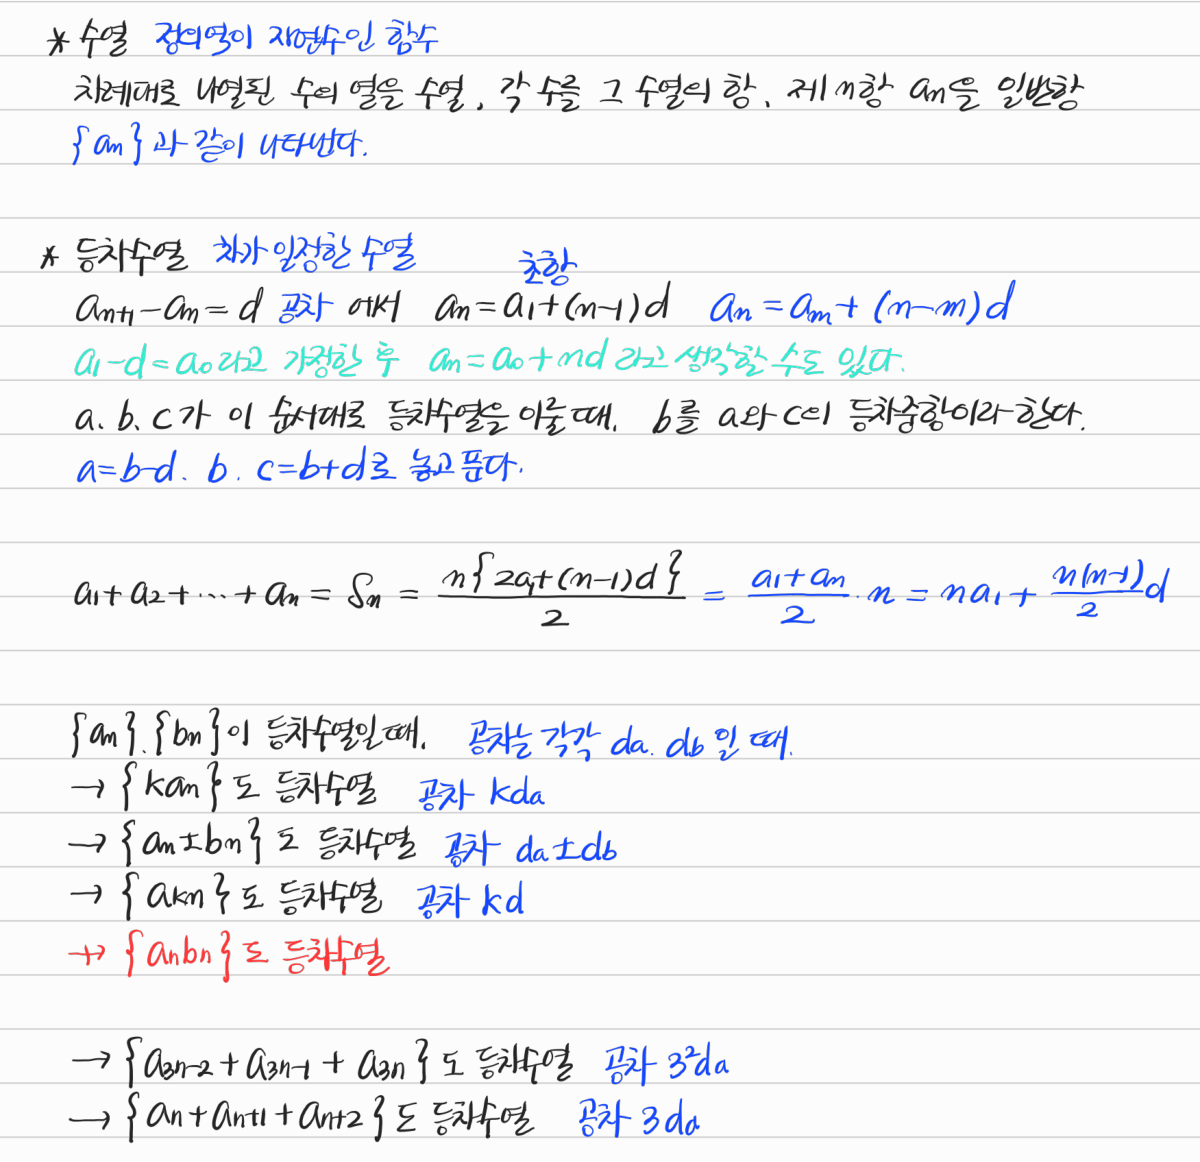 * 수열 정의역이 자연수인 함수
차례대로 나열된 수의 열을 수열, 각 수를 그 수열의 항, 제 n항 aₙ을 일반항
{aₙ}과 같이 나타낸다.
* 등차수열 차가 일정한 수열
초항
aₙ₊₁-aₙ=d 공차 에서 aₙ=a₁+(n-1)d aₙ=aₘ+(n-m)d
a₁-d=a₀라고 가정한 후 aₙ=a₀+nd 라고 생각할 수도 있다.
a, b, c가 이 순서대로 등차수열을 이룰 때, b를 a와 c의 등차중항이라 한다.
a=b-d, b, c=b+d로 놓고 푼다.
a₁+a₂+⋯+aₙ = Sₙ = n{2a₁+(n-1)d}/2 = (a₁+aₙ)/2·n = na₁+n(n-1)/2 d
{aₙ}, {bₙ}이 등차수열일 때, 공차는 각각 da, db 일 때,
→ {kaₙ}도 등차수열 공차 kda
→ {aₙ±bₙ}도 등차수열 공차 da±db
→ {aₖₙ}도 등차수열 공차 kd
↛ {aₙbₙ}도 등차수열
→ {a₃ₙ₋₂+a₃ₙ₋₁+a₃ₙ}도 등차수열 공차 3²da
→ {aₙ+aₙ₊₁+aₙ₊₂}도 등차수열 공차 3da